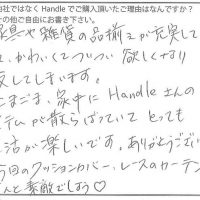 社ではなくHandleでご購入頂いたご理由はなんですか?
の他ご自由にお書き下さい。
具や雑貨の品揃えが充実して
、かわいくてついつい欲しくなり
してしまいます。
まごま、家中にHandleさんの
テムが散らばっていてとっても
活が楽しいです。ありがとうござい
今回のクッションカバー、レースのカーテン
んと素敵でしょう♡